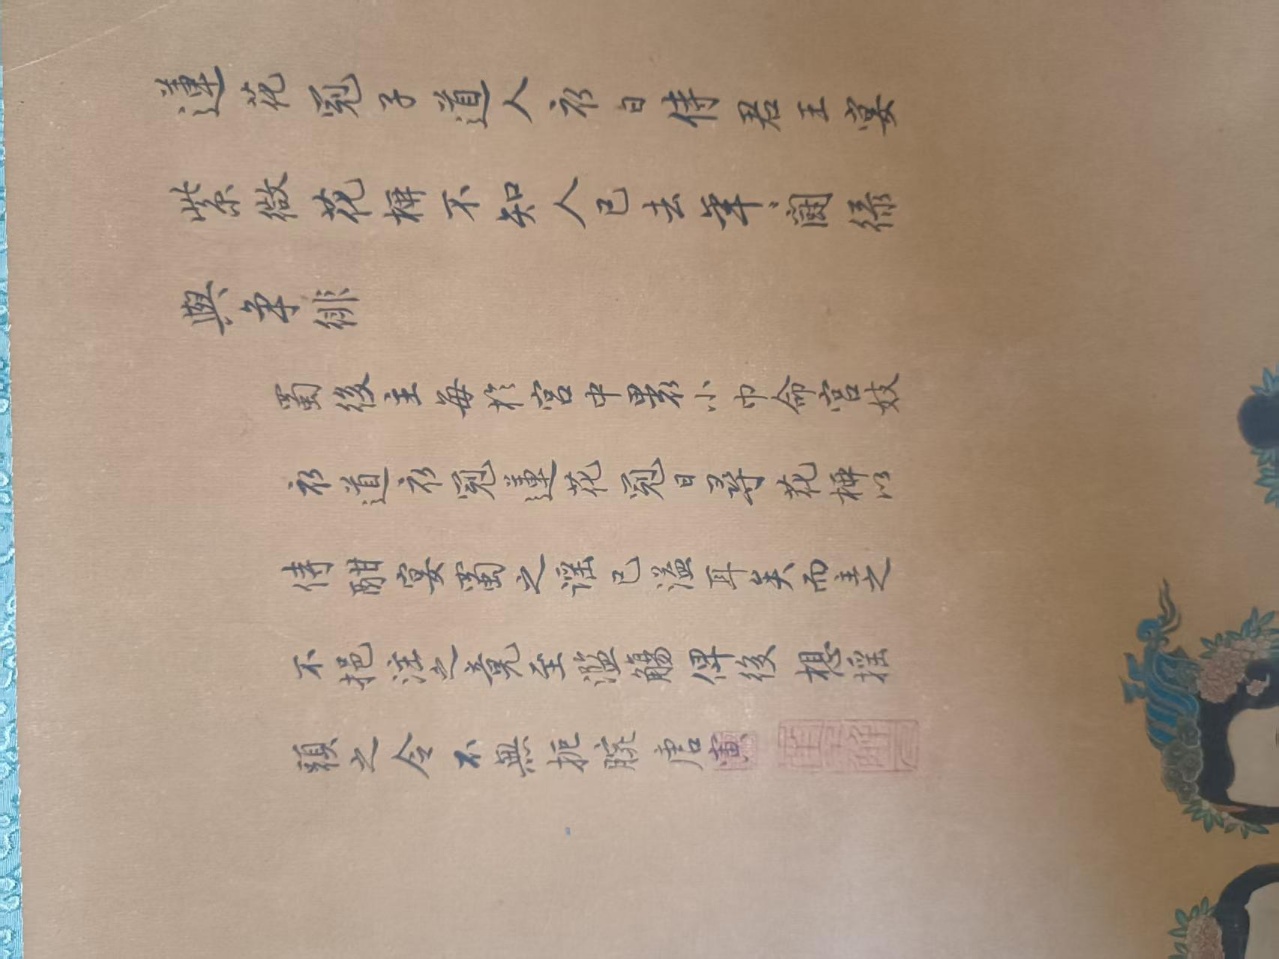 蓮花冠子道人衣日侍君王宴
紫微花柳不知人已去年〻鬪綠
與爭緋
蜀後主每於宮中裹小巾命宮妓
衣道衣冠蓮花冠日尋花柳以
侍酣宴蜀之謠已溢耳矣而主之
不挹注之竟至濫觴俾後想搖
頭之令不無扼腕唐寅